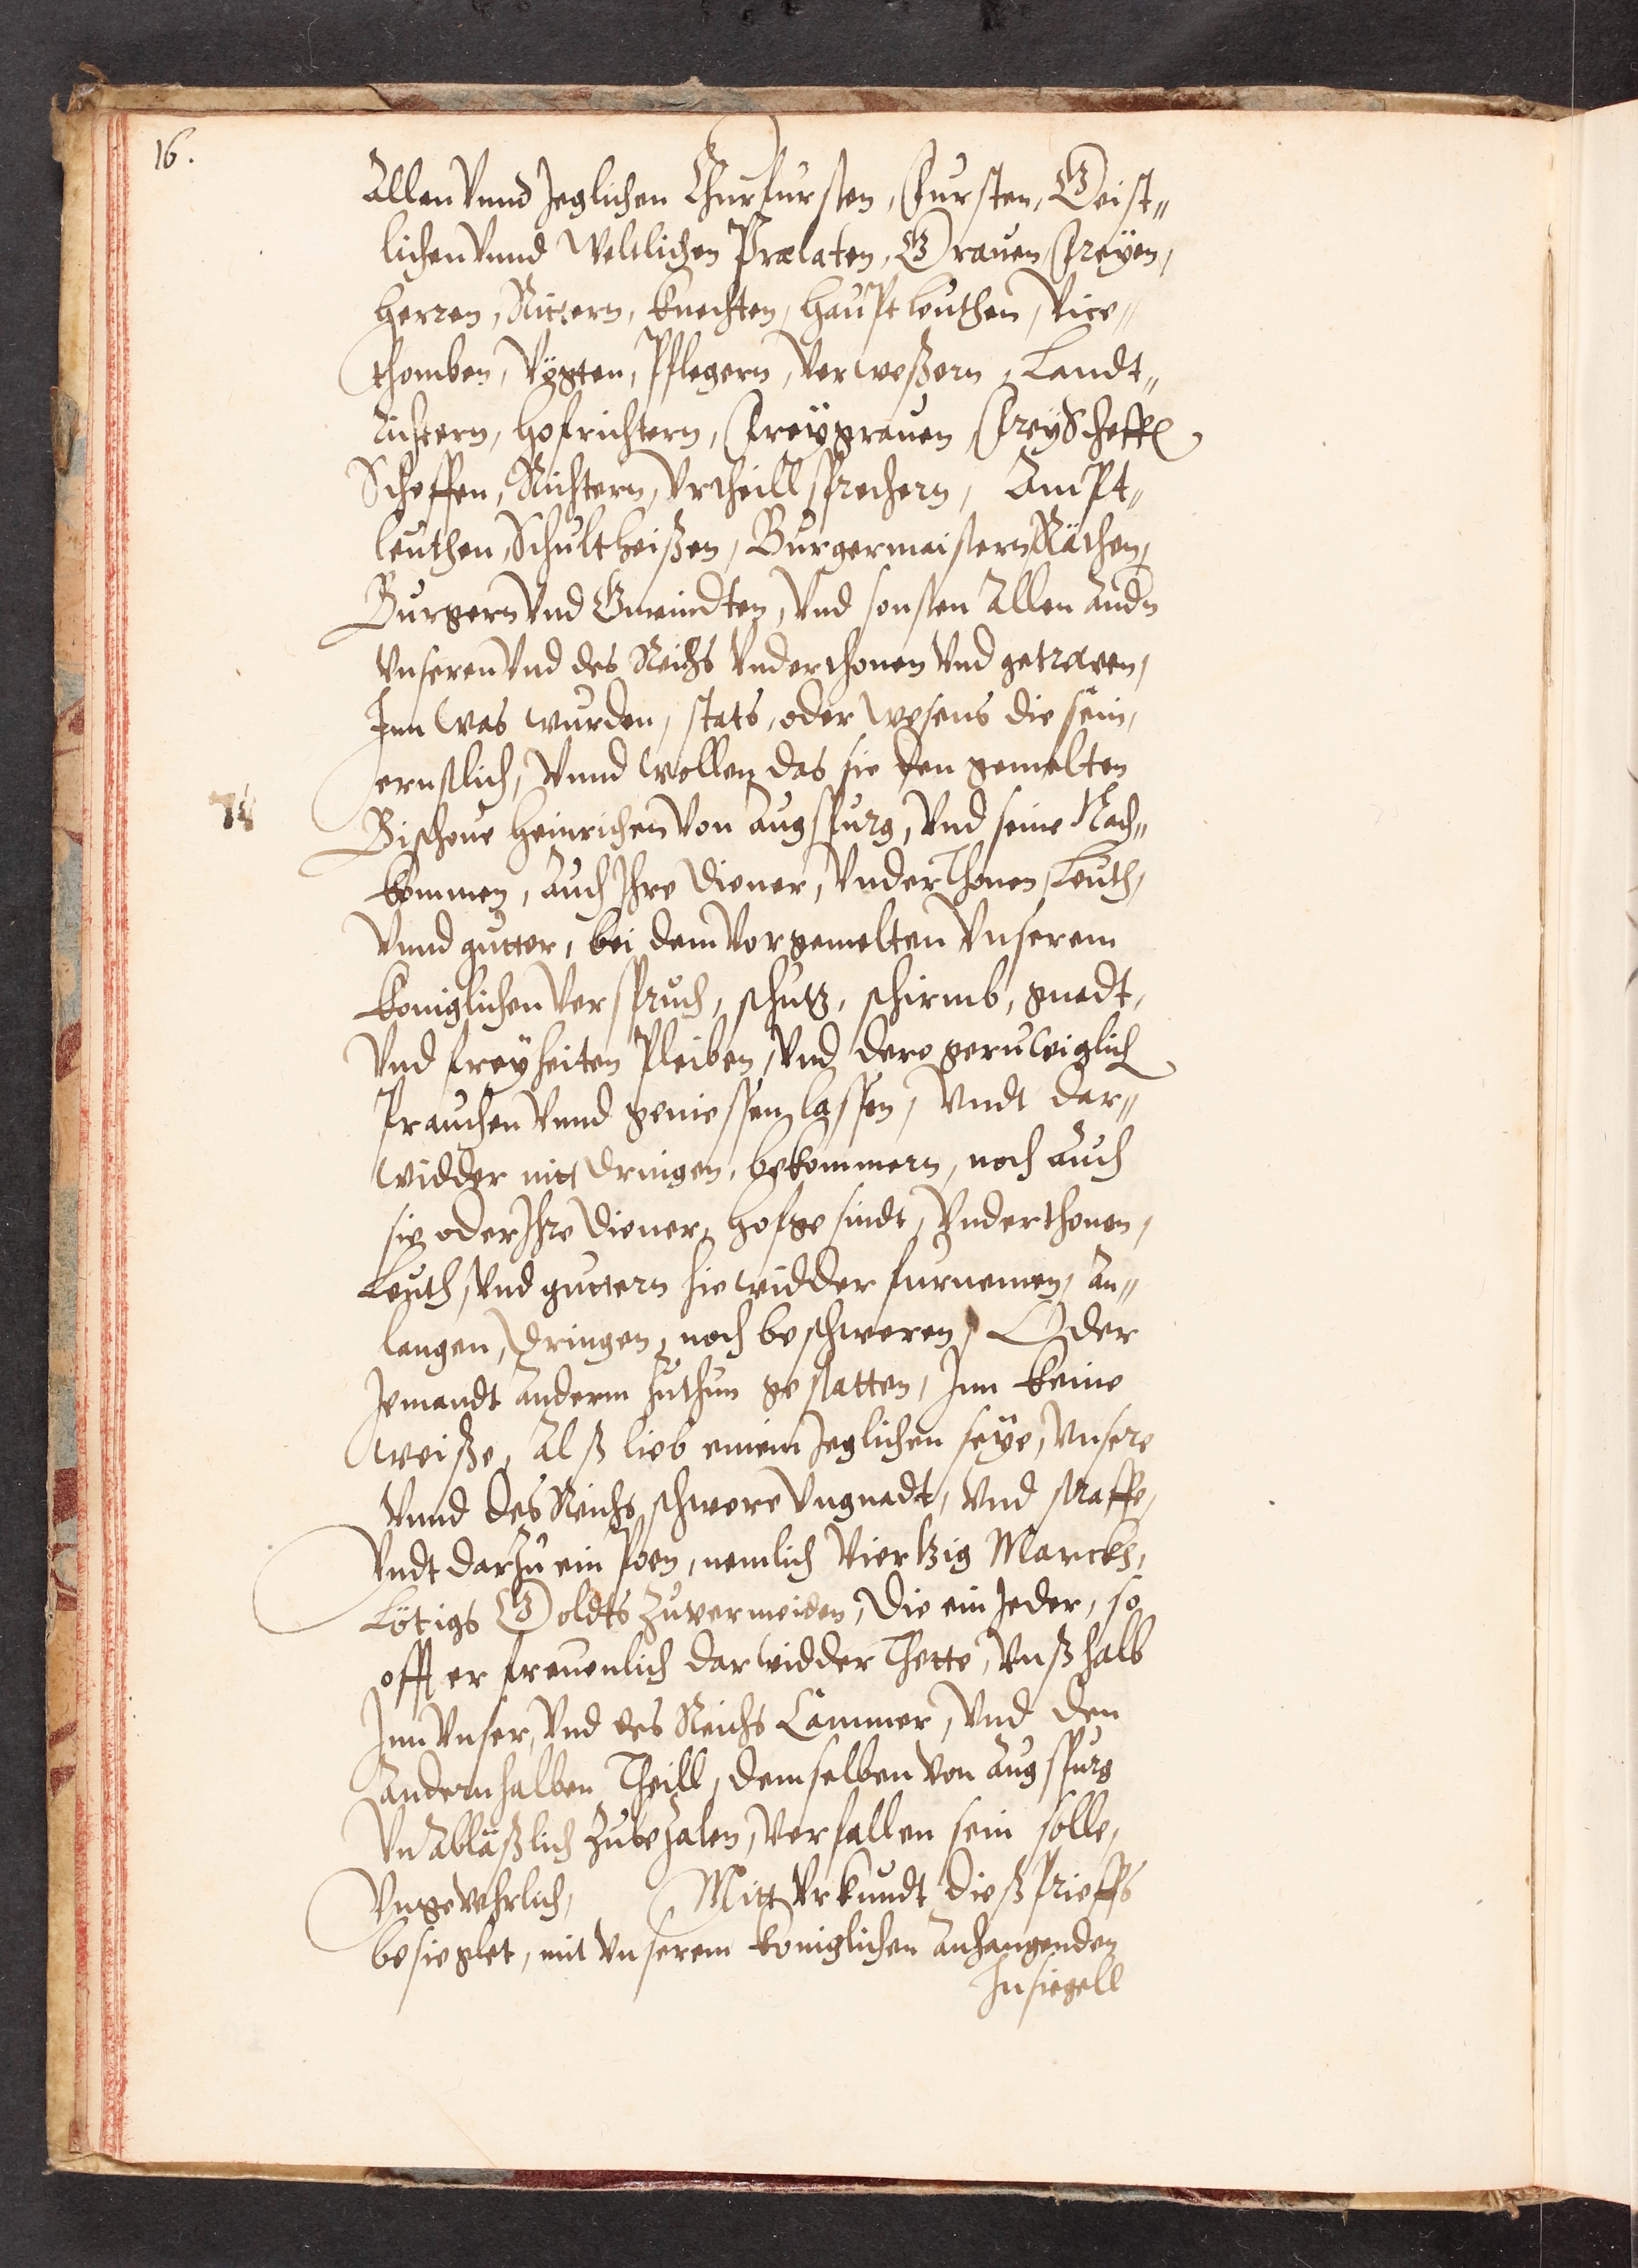 16.
Allen Vnnd Jeglichen Churfursten, Fursten, Geist„
lichen Vnnd Weltlichen Prælaten, Grauen, Freyen,
Herren, Rittern, Knechten, Hauptleuthen, Vice„
thomben, Vögten, Pflegern, Verweßern, Landt„
Richtern, Hofrichtern, Freygrauen, FreyScheff
Scheffen, Richtern, Vrtheillsprechern, Ampt„
leuthen, Schultheißen, Burgermaistern, Räthen,
Burgern Vnd Gmeindten, Vnd sonsten Allen Andn
Vnseren Vnd des Reichs Vnderthonen Vnd getrewen,
Jnn Was wurden, stats, oder Wesens die sein,
ernstlich, Vnnd Wollen das sie den gemelten
Bischoue Heinrichen Von Augspurg, Vnd seine Nach„
kommen, Auch Jhre Diener, VnderThonen, Leuth,
Vnnd gutter, bei dem Vorgemelten Vnserem
koniglichen Verspruch, schutz, schirmb, gnadt,
Vnd freyheiten Pleiben, Vnd dero geruwiglich
Prauchen Vnnd geniessen lassen, Vndt dar„
widder nitt dringen, bekommern, noch Auch
sie oder Jhre Diener, Hofgesindt, Vnderthonen,
Leuth, Vnd guttern hiewidder furnemen, An„
langen, dringen, noch beschweren, Oder
Jemandt Anderm zuthun gestatten, Jnn keine
Weiße, Alß lieb einem Jeglichen seye, Vnsere
Vnnd des Reichs schwere Vngnadt, Vnd straffe,
Vndt darzu ein Poen, nemlich Viertzig Marckh,
Lötigs Goldts Zuvermeiden, Die ein Jeder, so
offt er freuenlich darwidder Thette, Vnß halb
Jnn Vnser, Vnd des Reichs Cammer, Vnd den
Andern halben Theill, demselben Von Augspurg
VnAbläßlich Zubezalen, Verfallen sein solle,
Vngevehrlich, Mitt Vrkundt dieß Prieffs
besieglet, mit Vnserem koniglichen Anhangenden
Jnsiegell